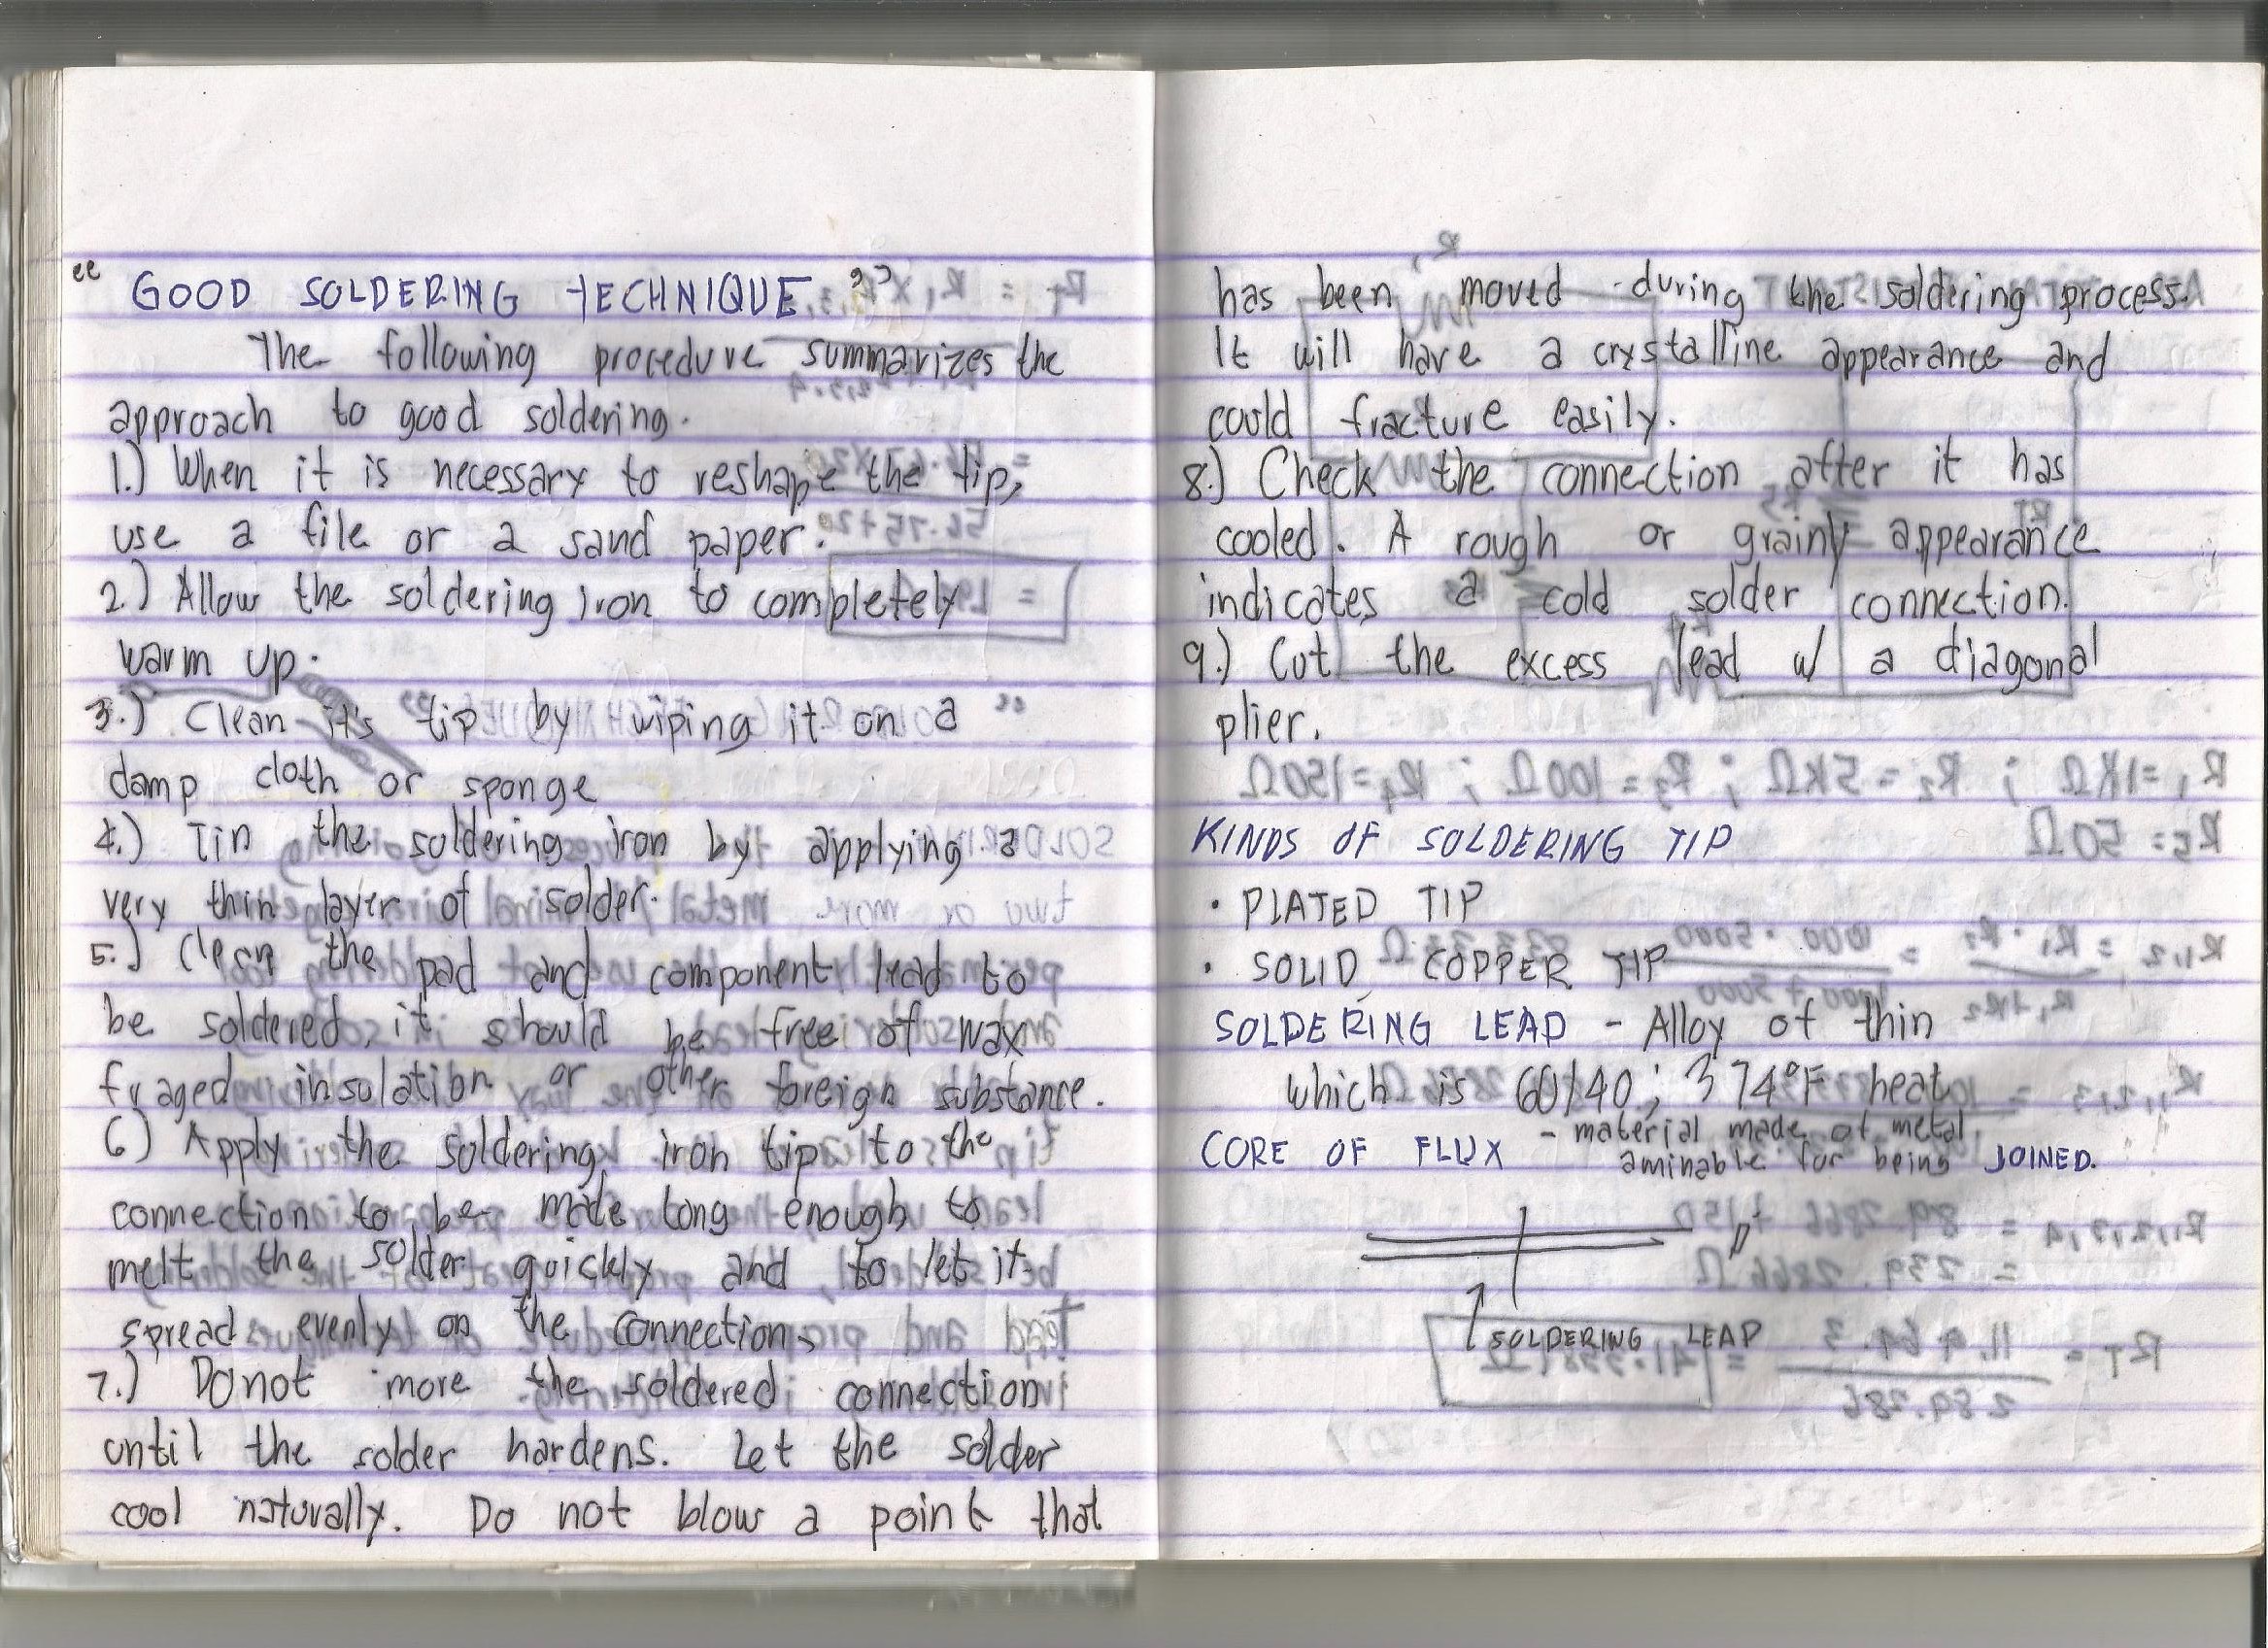 "GOOD SOLDERING TECHNIQUE"
The following procedure summarizes the
approach to good soldering.
1.) When it is necessary to reshape the tip,
use a file or a sand paper.
2.) Allow the soldering iron to completely
warm up.
3.) Clean it's tip by wiping it on a
damp cloth or sponge
4.) Tin the soldering iron by applying a
very thin layer of solder.
5.) Clean the pad and component lead to
be soldered, it should be free of wax
fraged insulation or other foreign substance.
6.) Apply the soldering iron tip to the
connection to be made long enough to
melt the solder quickly and, to let it
spread evenly on the connection,
7.) Do not more the soldered connection
until the solder hardens. Let the solder
cool naturally. Do not blow a point that
has been moved during the soldering process.
It will have a crystalline appearance and
could fracture easily.
8.) Check the connection after it has
cooled. A rough or grainly appearance
indicates a cold solder connection.
9.) Cut the excess lead w/ a diagonal
plier.
KINDS OF SOLDERING TIP
• PLATED TIP
• SOLID COPPER TIP
SOLDERING LEAD - Alloy of thin
which is 60/40; 374°F heat
CORE OF FLUX - material made of metal
aminable for being JOINED.
SOLDERING LEAD